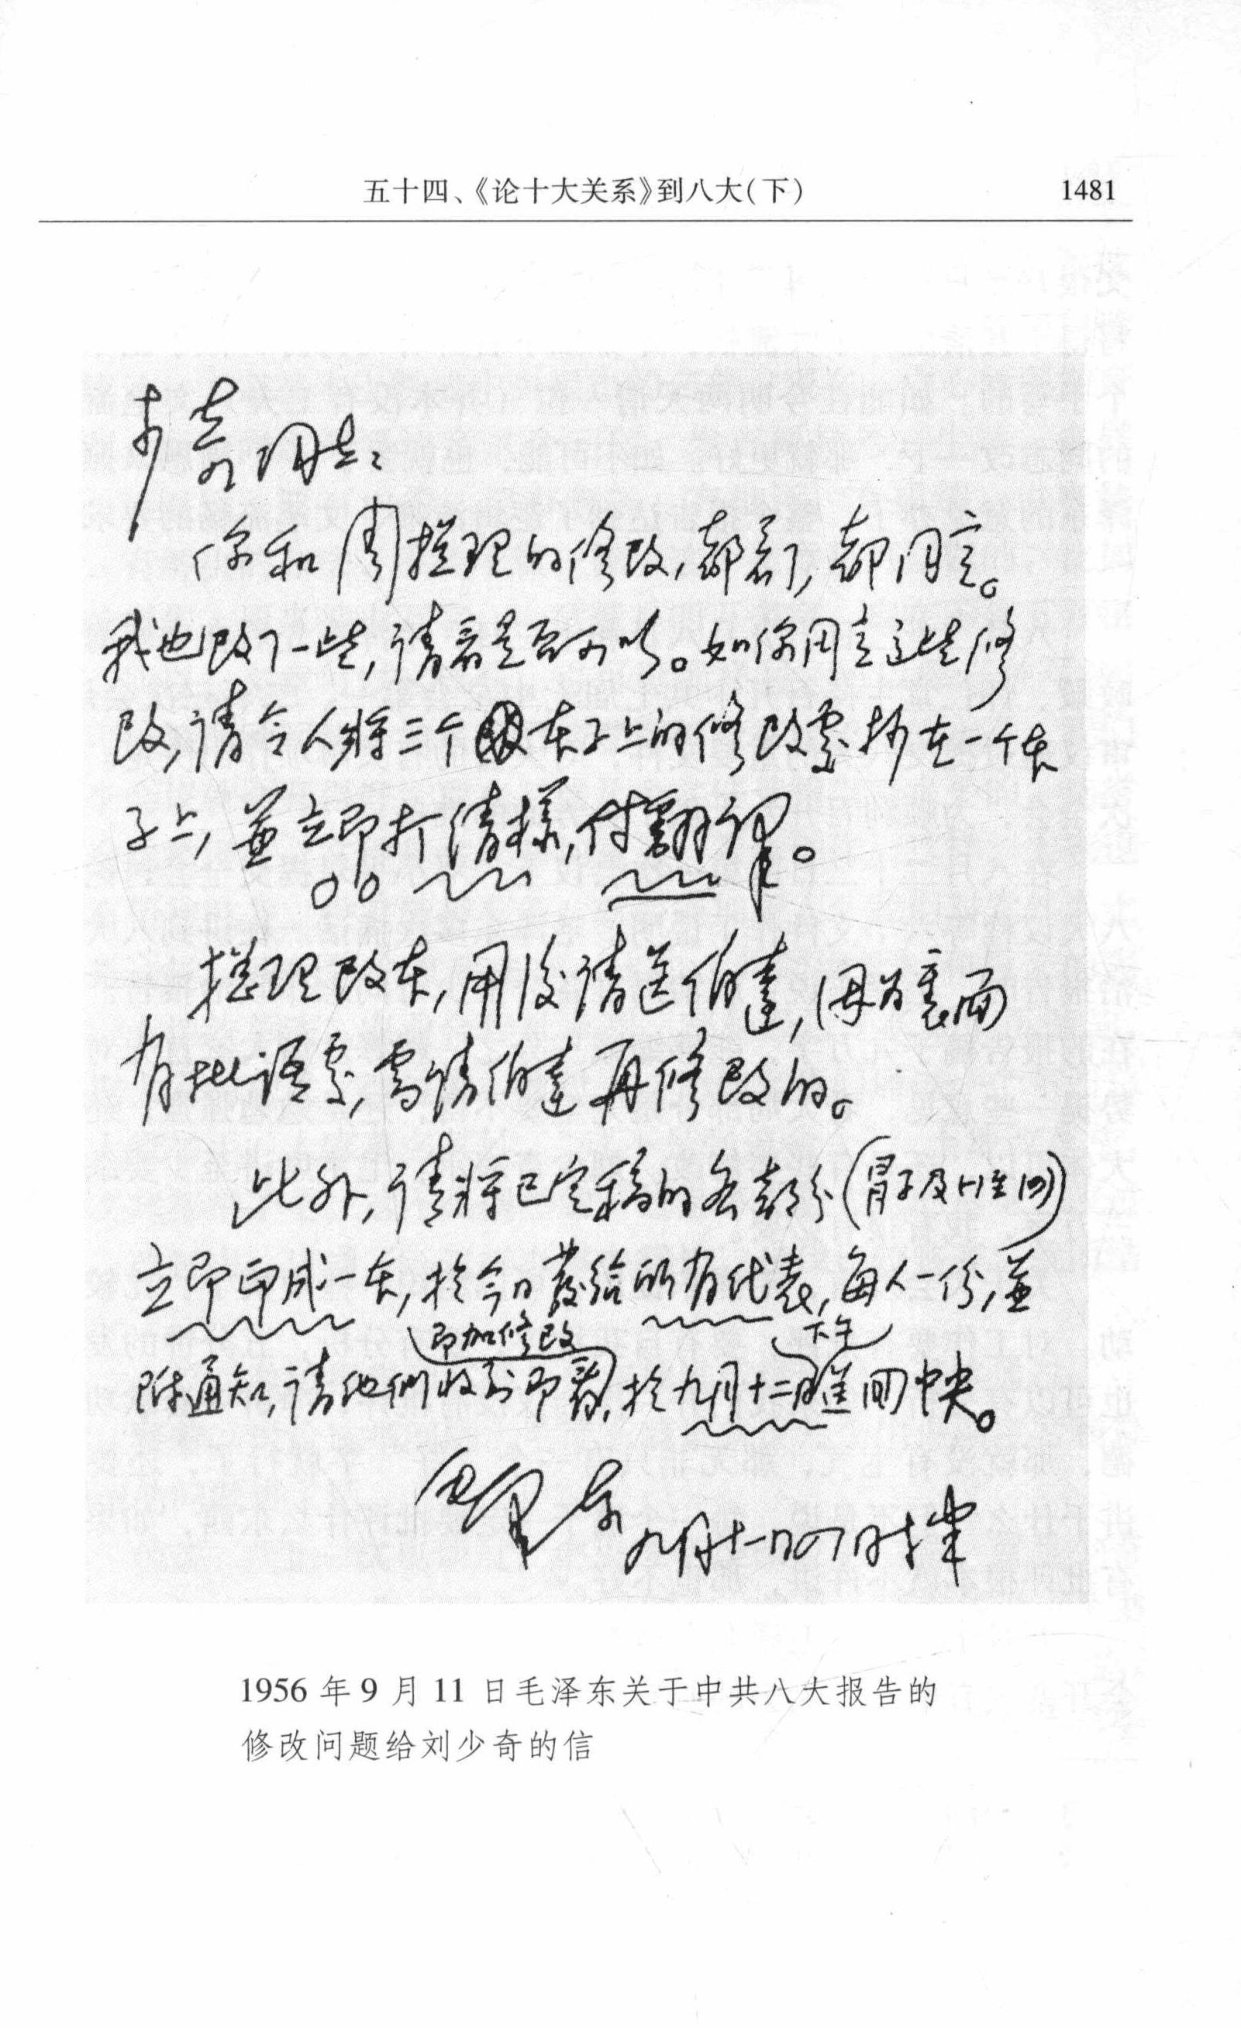 五十四、《论十大关系》到八大(下) 1481
少奇同志:
你和周總理的修改,都看了,都同意。
我也改了一些,请看是否可以。如你同意这些修
改,请令人将三个本子上的修改處抄在一个本
子上,並立即打清樣,付翻譯。
總理改本,用後请送伯達,因为裏面
有些语處,需请伯達再修改的。
此外,请将已定稿的各部分(冒子及
立即印成一本,於今日發给所有代表,每人一份,並
即加修改 下午
附通知,请他们收到即看,於九月十二日退回中央。
毛澤東
九月十一日 时半
1956 年 9 月 11 日毛泽东关于中共八大报告的
修改问题给刘少奇的信